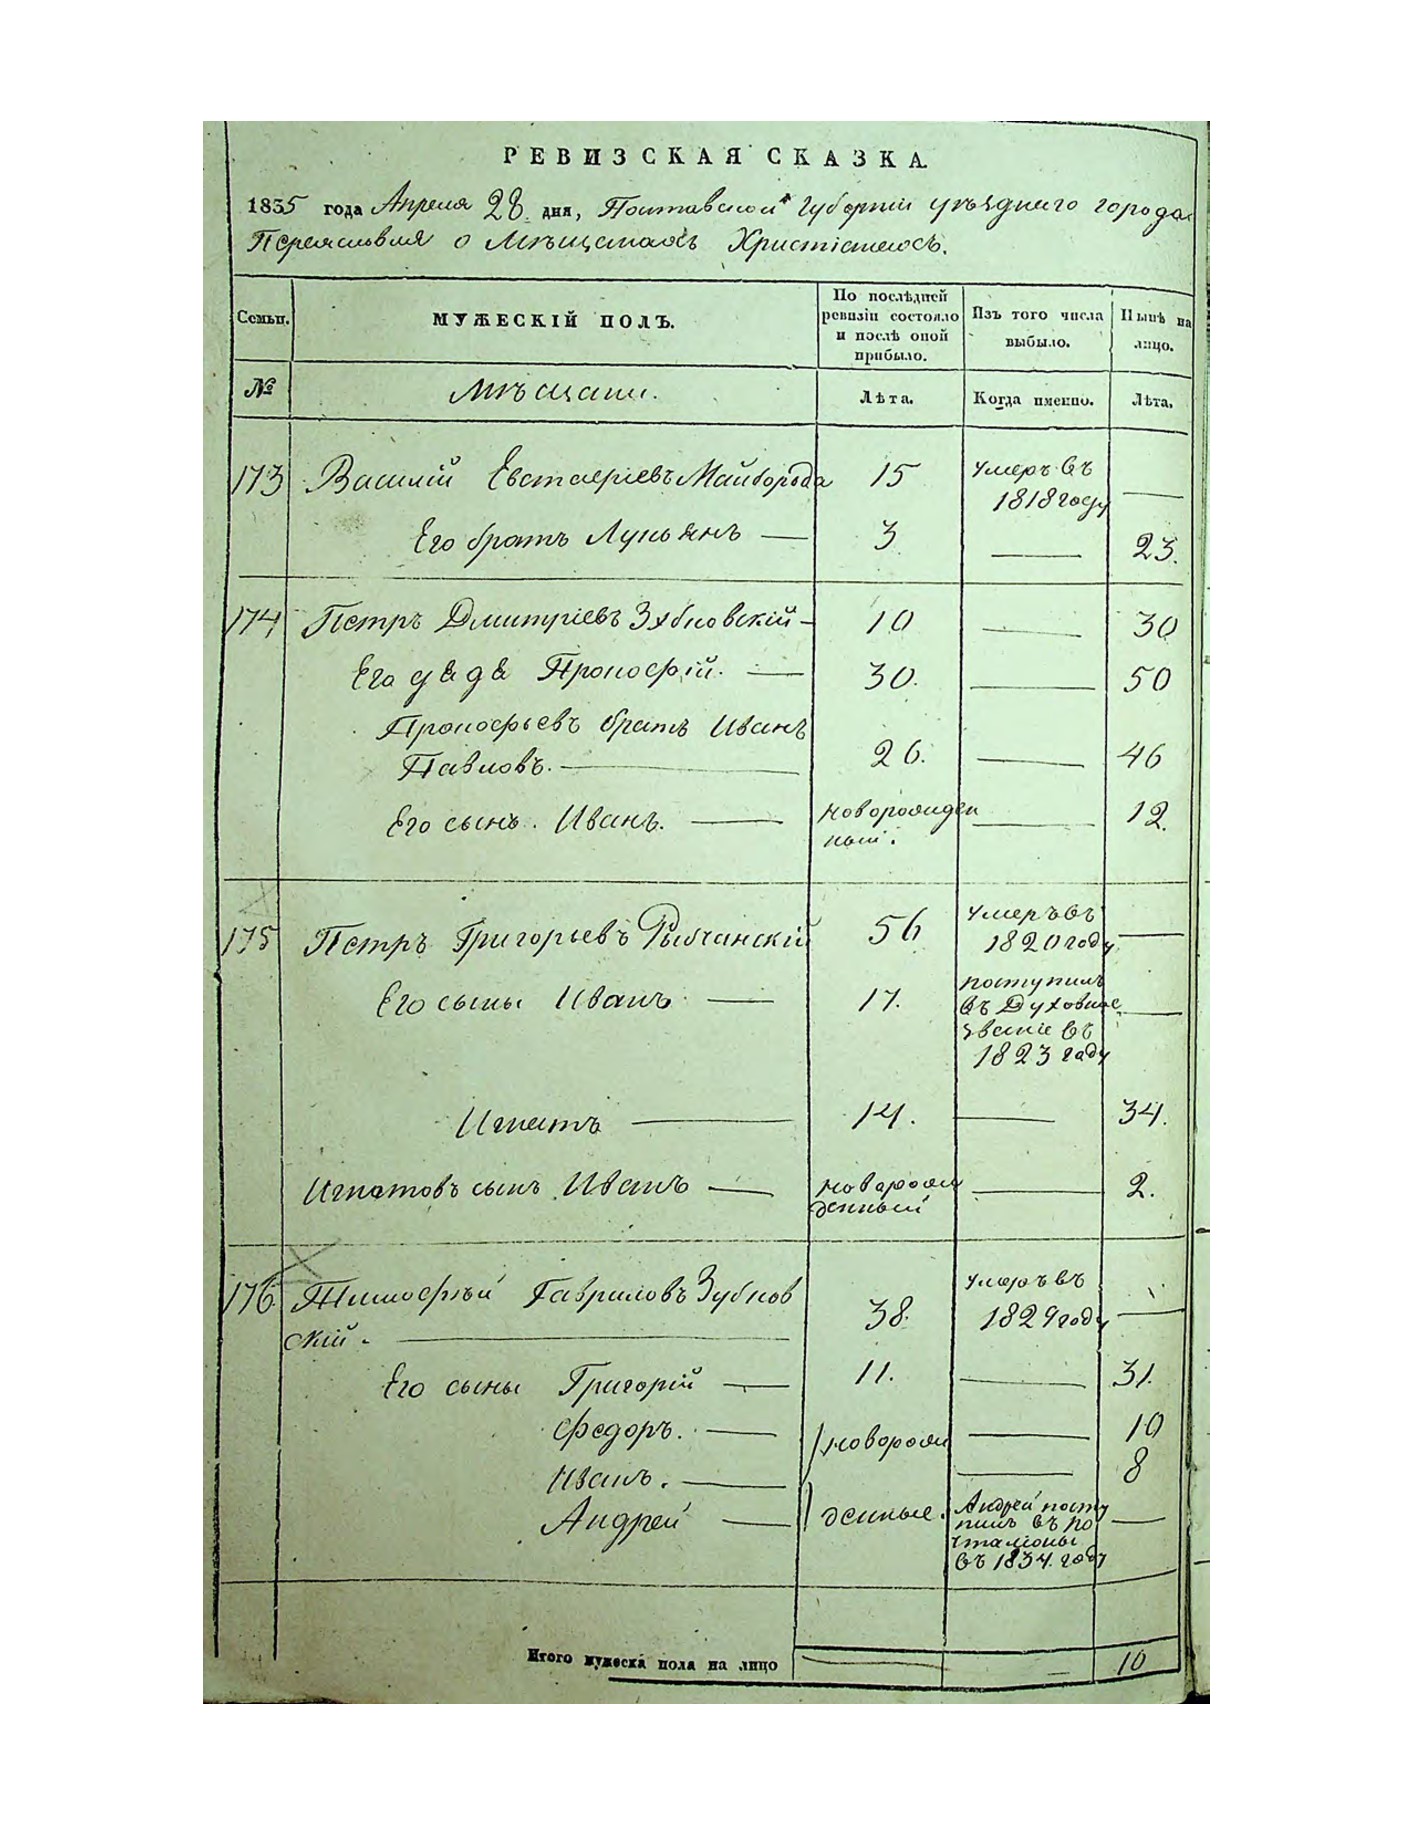 РЕВИЗСКАЯ СКАЗКА.
1835 года Апреля 28 дня, Полтавской Губерніи уѣзднаго города
Переяславля о Мѣщанахъ Христіанехъ.
Семьи.
МУЖЕСКІЙ ПОЛЪ.
По послѣдней ревизіи состояло и послѣ оной прибыло.
Изъ того числа выбыло.
Нынѣ на лицо.
№
Мѣщани.
Лѣта.
Когда именно.
Лѣта.
173 Василій Евстафіевъ Майборода 15 умеръ въ
1818 году —
Его братъ Лукьянъ — 3 — 23.
174 Петръ Дмитріевъ Зубковскій — 10 — 30
Его дядя Прокофій. — 30. — 50
Прокофьевъ братъ Иванъ
Павловъ. — 26. — 46
Его сынъ. Иванъ. — новорожден — 12.
ный.
175 Петръ Григорьевъ Рыбчанскій 56 умеръ въ
1820 году —
Его сыны Иванъ — 17. поступилъ
въ Духовное —
званіе въ
1823 году
Игнатъ — 14. — 34.
Игнатовъ сынъ Иванъ — новорож — 2.
денный
176. Тимофѣй Гавриловъ Зубков
скій. — 38. умеръ въ
1829 году —
Его сыны Григорій — 11. — 31.
Федоръ. — новорож — 10
Иванъ. — — 8
Андрей — денные. Андрей посту —
пилъ въ по
чталіоны
въ 1834. году
Итого мужеска пола на лицо — — 10